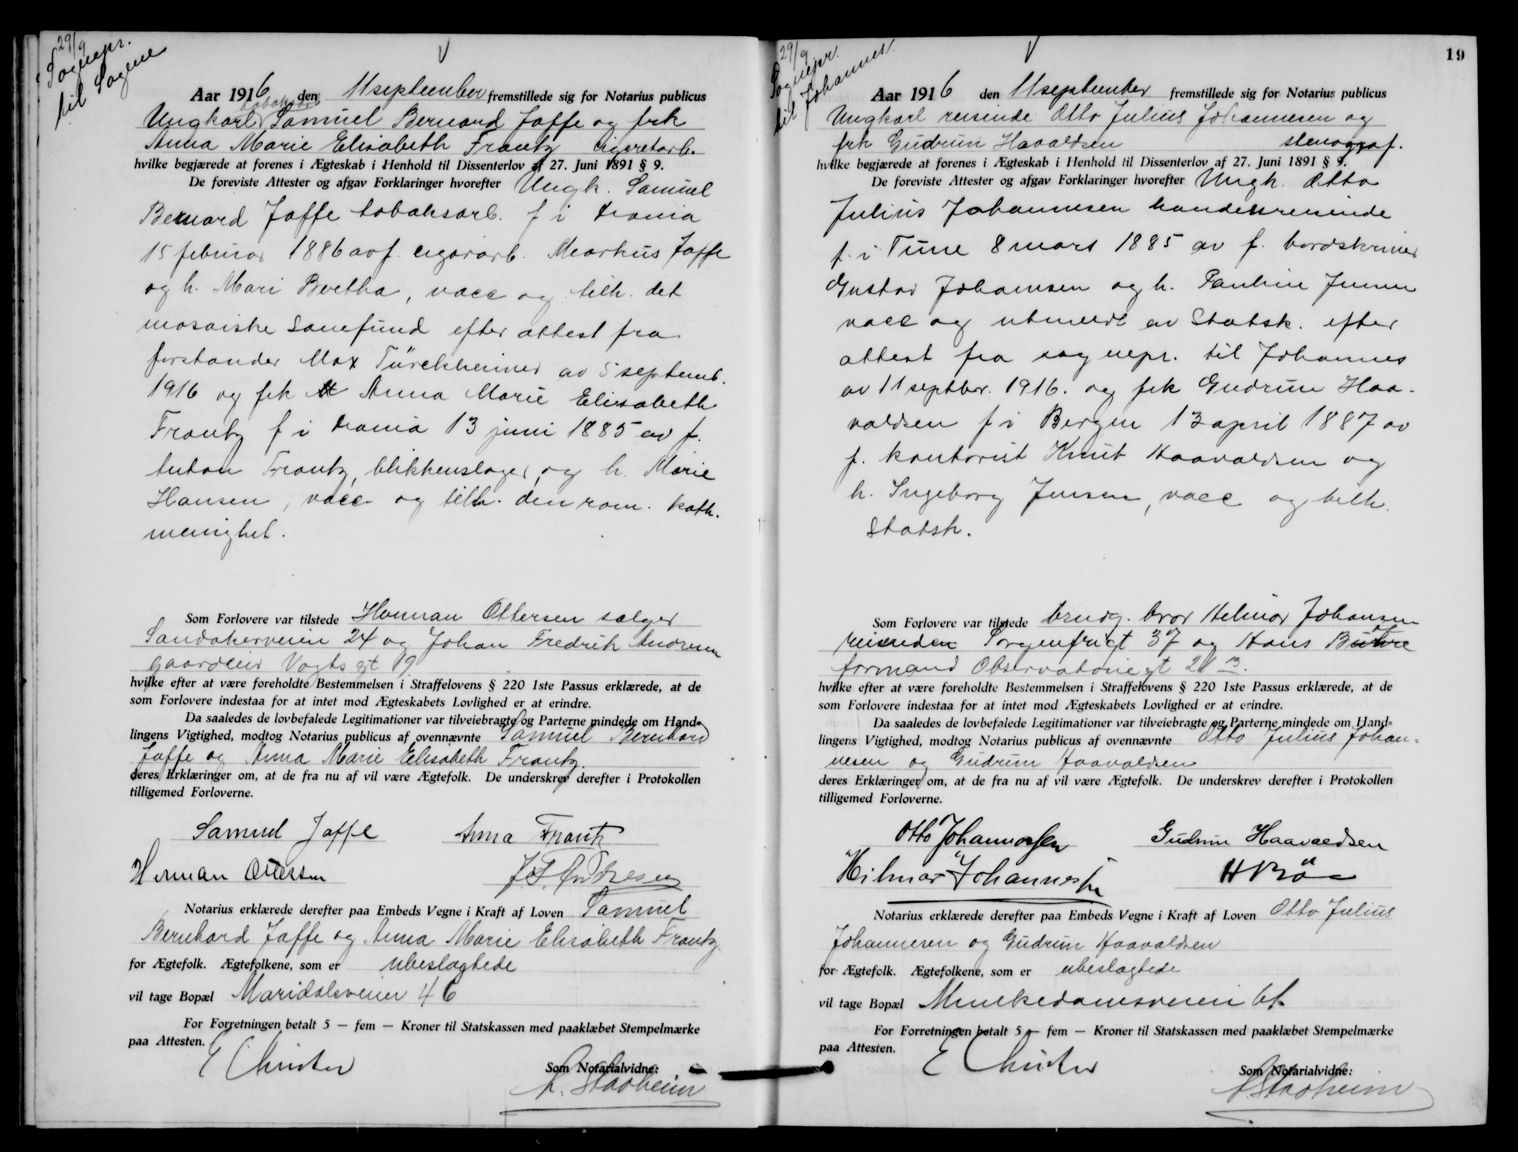 29/9
Sognepr.
til Sagene
Aar 1916 den 11 september fremstillede sig for Notarius publicus
tobaksarb.
Ungkarl Samuel Bernard Jaffe og frk
Anna Marie Elisabeth Frantz cigaretarb.
hvilke begjærede at forenes i Ægteskab i Henhold til Dissenterlov af 27. Juni 1891 § 9.
De foreviste Attester og afgav Forklaringer hvorefter Ungk. Samuel
Bernard Jaffe tobaksarb. f i Krania
15 februar 1886 av f. cigararb. Markus Jaffe
og h. Mari Bertha, vacc og tilh. det
mosaiske samfund efter attest fra
forstander Max Türckheimer av 5 septemb.
1916 og frk Anna Marie Elisabeth
Frantz f i Krania 13 juni 1885 av f.
Anton Frantz, blikkenslager, og h. Marie
Hansen, vacc og tilh. den rom. kath.
menighet.
Som Forlovere var tilstede Herman Ottersen sælger
Sandakerveien 24 og Johan Fredrik Andresen
gaardeier Vogts gt 19
hvilke efter at være foreholdte Bestemmelsen i Straffelovens § 220 1ste Passus erklærede, at de
som Forlovere indestaa for at intet mod Ægteskabets Lovlighed er at erindre.
Da saaledes de lovbefalede Legitimationer var tilveiebragte og Parterne mindede om Hand-
lingens Vigtighed, modtog Notarius publicus af ovennævnte Samuel Bernhard
Jaffe og Anna Marie Elisabeth Frantz.
deres Erklæringer om, at de fra nu af vil være Ægtefolk. De underskrev derefter i Protokollen
tilligemed Forloverne.
Samuel Jaffe Anna Frantz
Herman Ottersen J. F. Andresen
Notarius erklærede derefter paa Embeds Vegne i Kraft af Loven Samuel
Bernhard Jaffe og Anna Marie Elisabeth Frantz
for Ægtefolk. Ægtefolkene, som er ubeslagtede
vil tage Bopæl Maridalsveien 46
For Forretningen betalt 5 — fem — Kroner til Statskassen med paaklæbet Stempelmærke
paa Attesten.
Som Notarialvidne:
19
29/9
Sognepr.
til Johannes.
Aar 1916 den 11 september fremstillede sig for Notarius publicus
Ungkarl reisende Otto Julius Johannesen og
frk Gudrun Haavaldsen stenograf.
hvilke begjærede at forenes i Ægteskab i Henhold til Dissenterlov af 27. Juni 1891 § 9.
De foreviste Attester og afgav Forklaringer hvorefter Ungk. Otto
Julius Johannesen handelsreisende
f. i Tune 8 mars 1885 av f. bordskriver
Gustav Johannesen og h. Pauline Jensen
vacc og utmeldt av Statsk. efter
attest fra sognepr. til Johannes
av 11 septbr. 1916. og frk Gudrun Haa-
valdsen f i Bergen 13 april 1887 av
f. kontorist Knut Haavaldsen og
h. Ingeborg Jensen, vacc og tilh.
Statsk.
Som Forlovere var tilstede brudg. bror Hilmar Johansen
reisende Sorgenfrigt 37 og Hans
formand Observatoriegt 2
hvilke efter at være foreholdte Bestemmelsen i Straffelovens § 220 1ste Passus erklærede, at de
som Forlovere indestaa for at intet mod Ægteskabets Lovlighed er at erindre.
Da saaledes de lovbefalede Legitimationer var tilveiebragte og Parterne mindede om Hand-
lingens Vigtighed, modtog Notarius publicus af ovennævnte Otto Julius Johan-
nesen og Gudrun Haavaldsen
deres Erklæringer om, at de fra nu af vil være Ægtefolk. De underskrev derefter i Protokollen
tilligemed Forloverne.
Otto Johannessen Gudrun Haavaldsen
Hilmar Johannessen
Notarius erklærede derefter paa Embeds Vegne i Kraft af Loven Otto Julius
Johannesen og Gudrun Haavaldsen
for Ægtefolk. Ægtefolkene, som er ubeslagtede
vil tage Bopæl Munkedamsveien
For Forretningen betalt 5 — fem — Kroner til Statskassen med paaklæbet Stempelmærke
paa Attesten.
Som Notarialvidne: